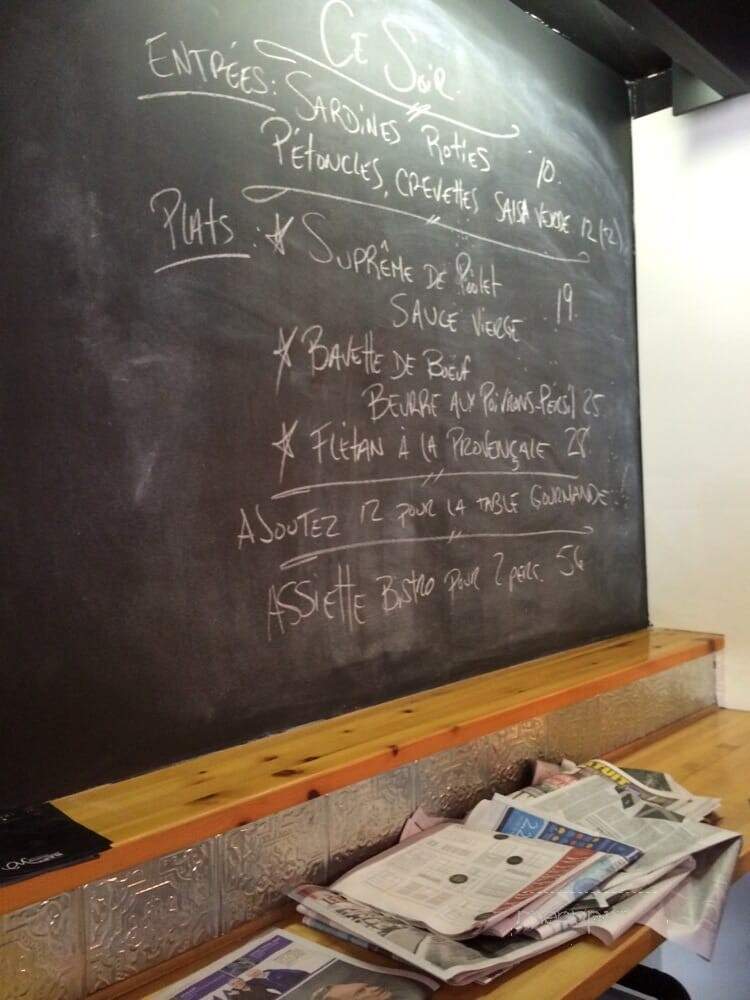 CE SOIR
ENTRÉES: SARDINES ROTIES 10.
PÉTONCLES, CREVETTES SALSA VERDE 12 (+2)
PLATS: SUPRÊME DE POULET
SAUCE VIERGE 19.
BAVETTE DE BOEUF
BEURRE AUX POIVRONS-PERSIL 25
FLÉTAN À LA PROVENÇALE 28
AJOUTEZ 12 POUR LA TABLE GOURMANDE!
ASSIETTE BISTRO POUR 2 PERS. 56